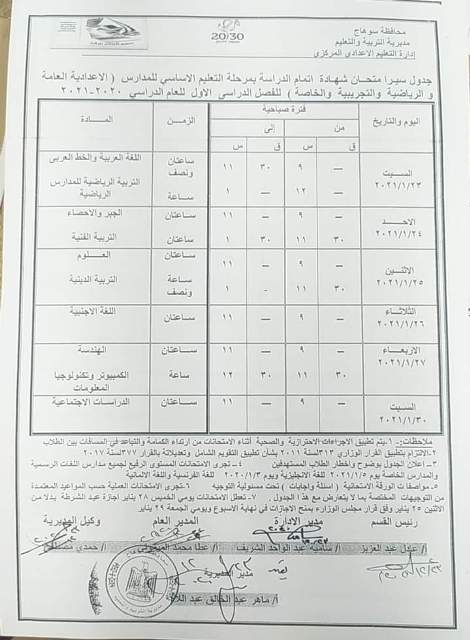 محافظة سوهاج
مديرية التربية والتعليم
إدارة التعليم الاعدادى المركزى
20/30
جدول سير امتحان شهادة اتمام الدراسة بمرحلة التعليم الاساسي للمدارس ( الاعدادية العامة
و الرياضية والتجريبية والخاصة ) للفصل الدراسى الاول للعام الدراسي ٢٠٢٠-٢٠٢١
اليوم والتاريخ فترة صباحية الزمن المادة
من إلى
ق س ق س
السبت ٢٠٢١/١/٢٣
— ٩ ٣٠ ١١ ساعتان ونصف اللغة العربية والخط العربى
— ١٢ — ١ ساعة التربية الرياضية للمدارس الرياضية
الاحد ٢٠٢١/١/٢٤
— ٩ — ١١ ساعتان الجبر والاحصاء
٣٠ ١١ ٣٠ ١ ساعتان التربية الفنية
الاثنين ٢٠٢١/١/٢٥
— ٩ — ١١ ساعتان العلوم
٣٠ ١١ - ١ ساعة ونصف التربية الدينية
الثلاثاء ٢٠٢١/١/٢٦
— ٩ — ١١ ساعتان اللغة الاجنبية
الاربعاء ٢٠٢١/١/٢٧
— ٩ — ١١ ساعتان الهندسة
٣٠ ١١ ٣٠ ١٢ ساعة الكمبيوتر وتكنولوجيا المعلومات
السبت ٢٠٢١/١/٣٠
— ٩ — ١١ ساعتان الدراسات الاجتماعية
ملاحظات:- ١.يتم تطبيق الاجراءات الاحترازية والصحية أثناء الامتحانات من ارتداء الكمامة والتباعد في المسافات بين الطلاب
٢.الالتزام بتطبيق القرار الوزاري ٣١٣لسنة ٢٠١١ بشأن تطبيق التقويم الشامل وتعديلاته بالقرار ٣٧٧لسنة ٢٠١٧
٣. اعلان الجدول بوضوح واخطار الطلاب المستهدفين ٤- تجرى امتحانات المستوى الرفيع لجميع مدارس اللغات الرسمية
والمدارس الخاصة يوم ٢٠٢١/١/٥ للغة الانجليزية ويوم ٢٠٢١/١/٣ للغة الفرنسية واللغة الالمانية
٥. مواصفات الورقة الامتحانية ( اسئلة واجابات ) تحت مسئولية التوجيه ٦.تجرى الامتحانات العملية حسب المواعيد المعتمدة
من التوجيهات المختصة بما لا يتعارض مع هذا الجدول . ٧- تعطل الامتحانات يومي الخميس ٢٨ يناير اجازة عيد الشرطة بدلا من
الاثنين ٢٥ يناير وفق قرار مجلس الوزراء بمنح الاجازات في نهاية الاسبوع ويومي الجمعة ٢٩ يناير
رئيس القسم مدير الادارة المدير العام وكيل المديرية
أ/ عادل عبد العزيز أ/ سامية عبد الواحد الشريف أ/ عطا محمد أ/ حمدي مصطفى
مدير المديرية
أ/ ماهر عبد الخالق عبد اللاه